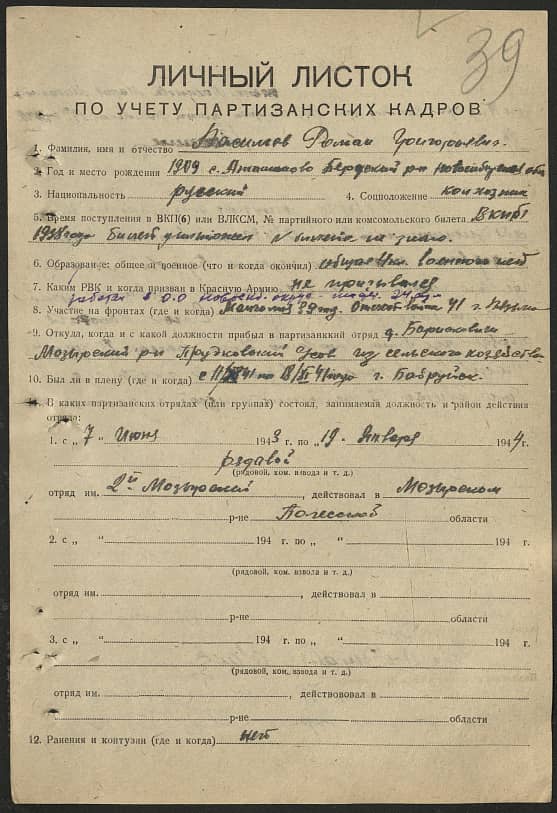 39
ЛИЧНЫЙ ЛИСТОК
ПО УЧЕТУ ПАРТИЗАНСКИХ КАДРОВ
1. Фамилия, имя и отчество Касимов Роман Григорьевич.
2. Год и место рождения 1909 с. Бердский р-н Новосибирской обл
3. Национальность русский 4. Соцположение колхозник
5. Время поступления в ВКП(б) или ВЛКСМ, № партийного или комсомольского билета ВКПб
1938 года Билет уничтожен № билета не знаю.
6. Образование: общее и военное (что и когда окончил) общее военного нет
7. Каким РВК и когда призван в Красную Армию не призывался
работал в О.О
8. Участие на фронтах (где и когда) Монголия 39 год. 41 г.
9. Откуда, когда и с какой должности прибыл в партизанский отряд д. Борисковичи
Мозырский р-н из сельского хозяйства
10. Был ли в плену (где и когда) с по г. Бобруйск.
11. В каких партизанских отрядах (или группах) состоял, занимаемая должность и район действия
отряда:
1. с „ 7 “ Июня 1943 г. по „ 19 “ Января 1944 г.
рядовой
(рядовой, ком. взвода и т. д.)
отряд им. 2й Мозырский, действовал в Мозырском
р-не Полесской области
2. с „ “ 194 г. по „ “ 194 г.
(рядовой, ком. взвола и т. д.)
отряд им. , действовал в
р-не области
3. с „ “ 194 г. по „ “ 194 г.
(рядовой, ком. взвода и т. д.)
отряд им. , действовал в
р-не области
12. Ранения и контузии (где и когда) нет